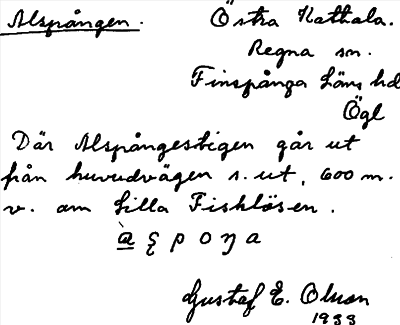 Alspången. Östra Kathala.
Regna sn.
Finspånga läns hd
Ögl
Där Alspångestigen går ut
från huvudvägen s. ut, 600 m.
v. om Lilla Fisklösen.
Gustaf E. Olsson
1933